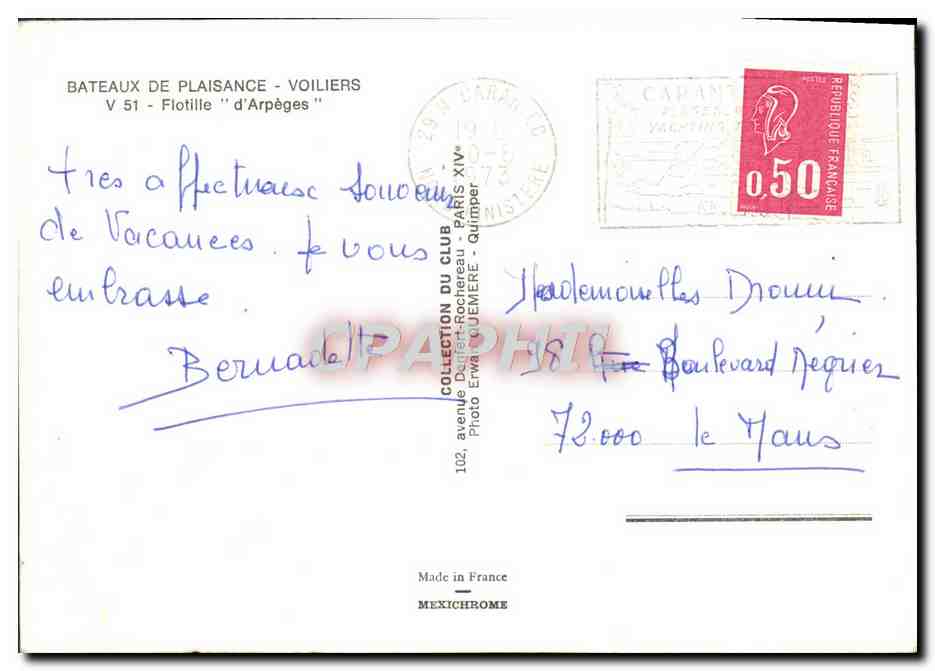 BATEAUX DE PLAISANCE - VOILIERS
V 51 - Flotille " d'Arpèges "
très affectueux souvenirs
de Vacances. Je vous
embrasse
Bernadette
COLLECTION DU CLUB -
102, avenue Denfert-Rochereau - PARIS XIVe
Photo Erwan QUEMERE - Quimper
29 N CARANTEC
FINISTERE
CARANT
YACHTING
POSTES
REPUBLIQUE FRANÇAISE
0,50
CPAPHIL
Mesdemoiselles Drouin
98 Rue Boulevard Négrier
72.000 le Mans
Made in France
MEXICHROME